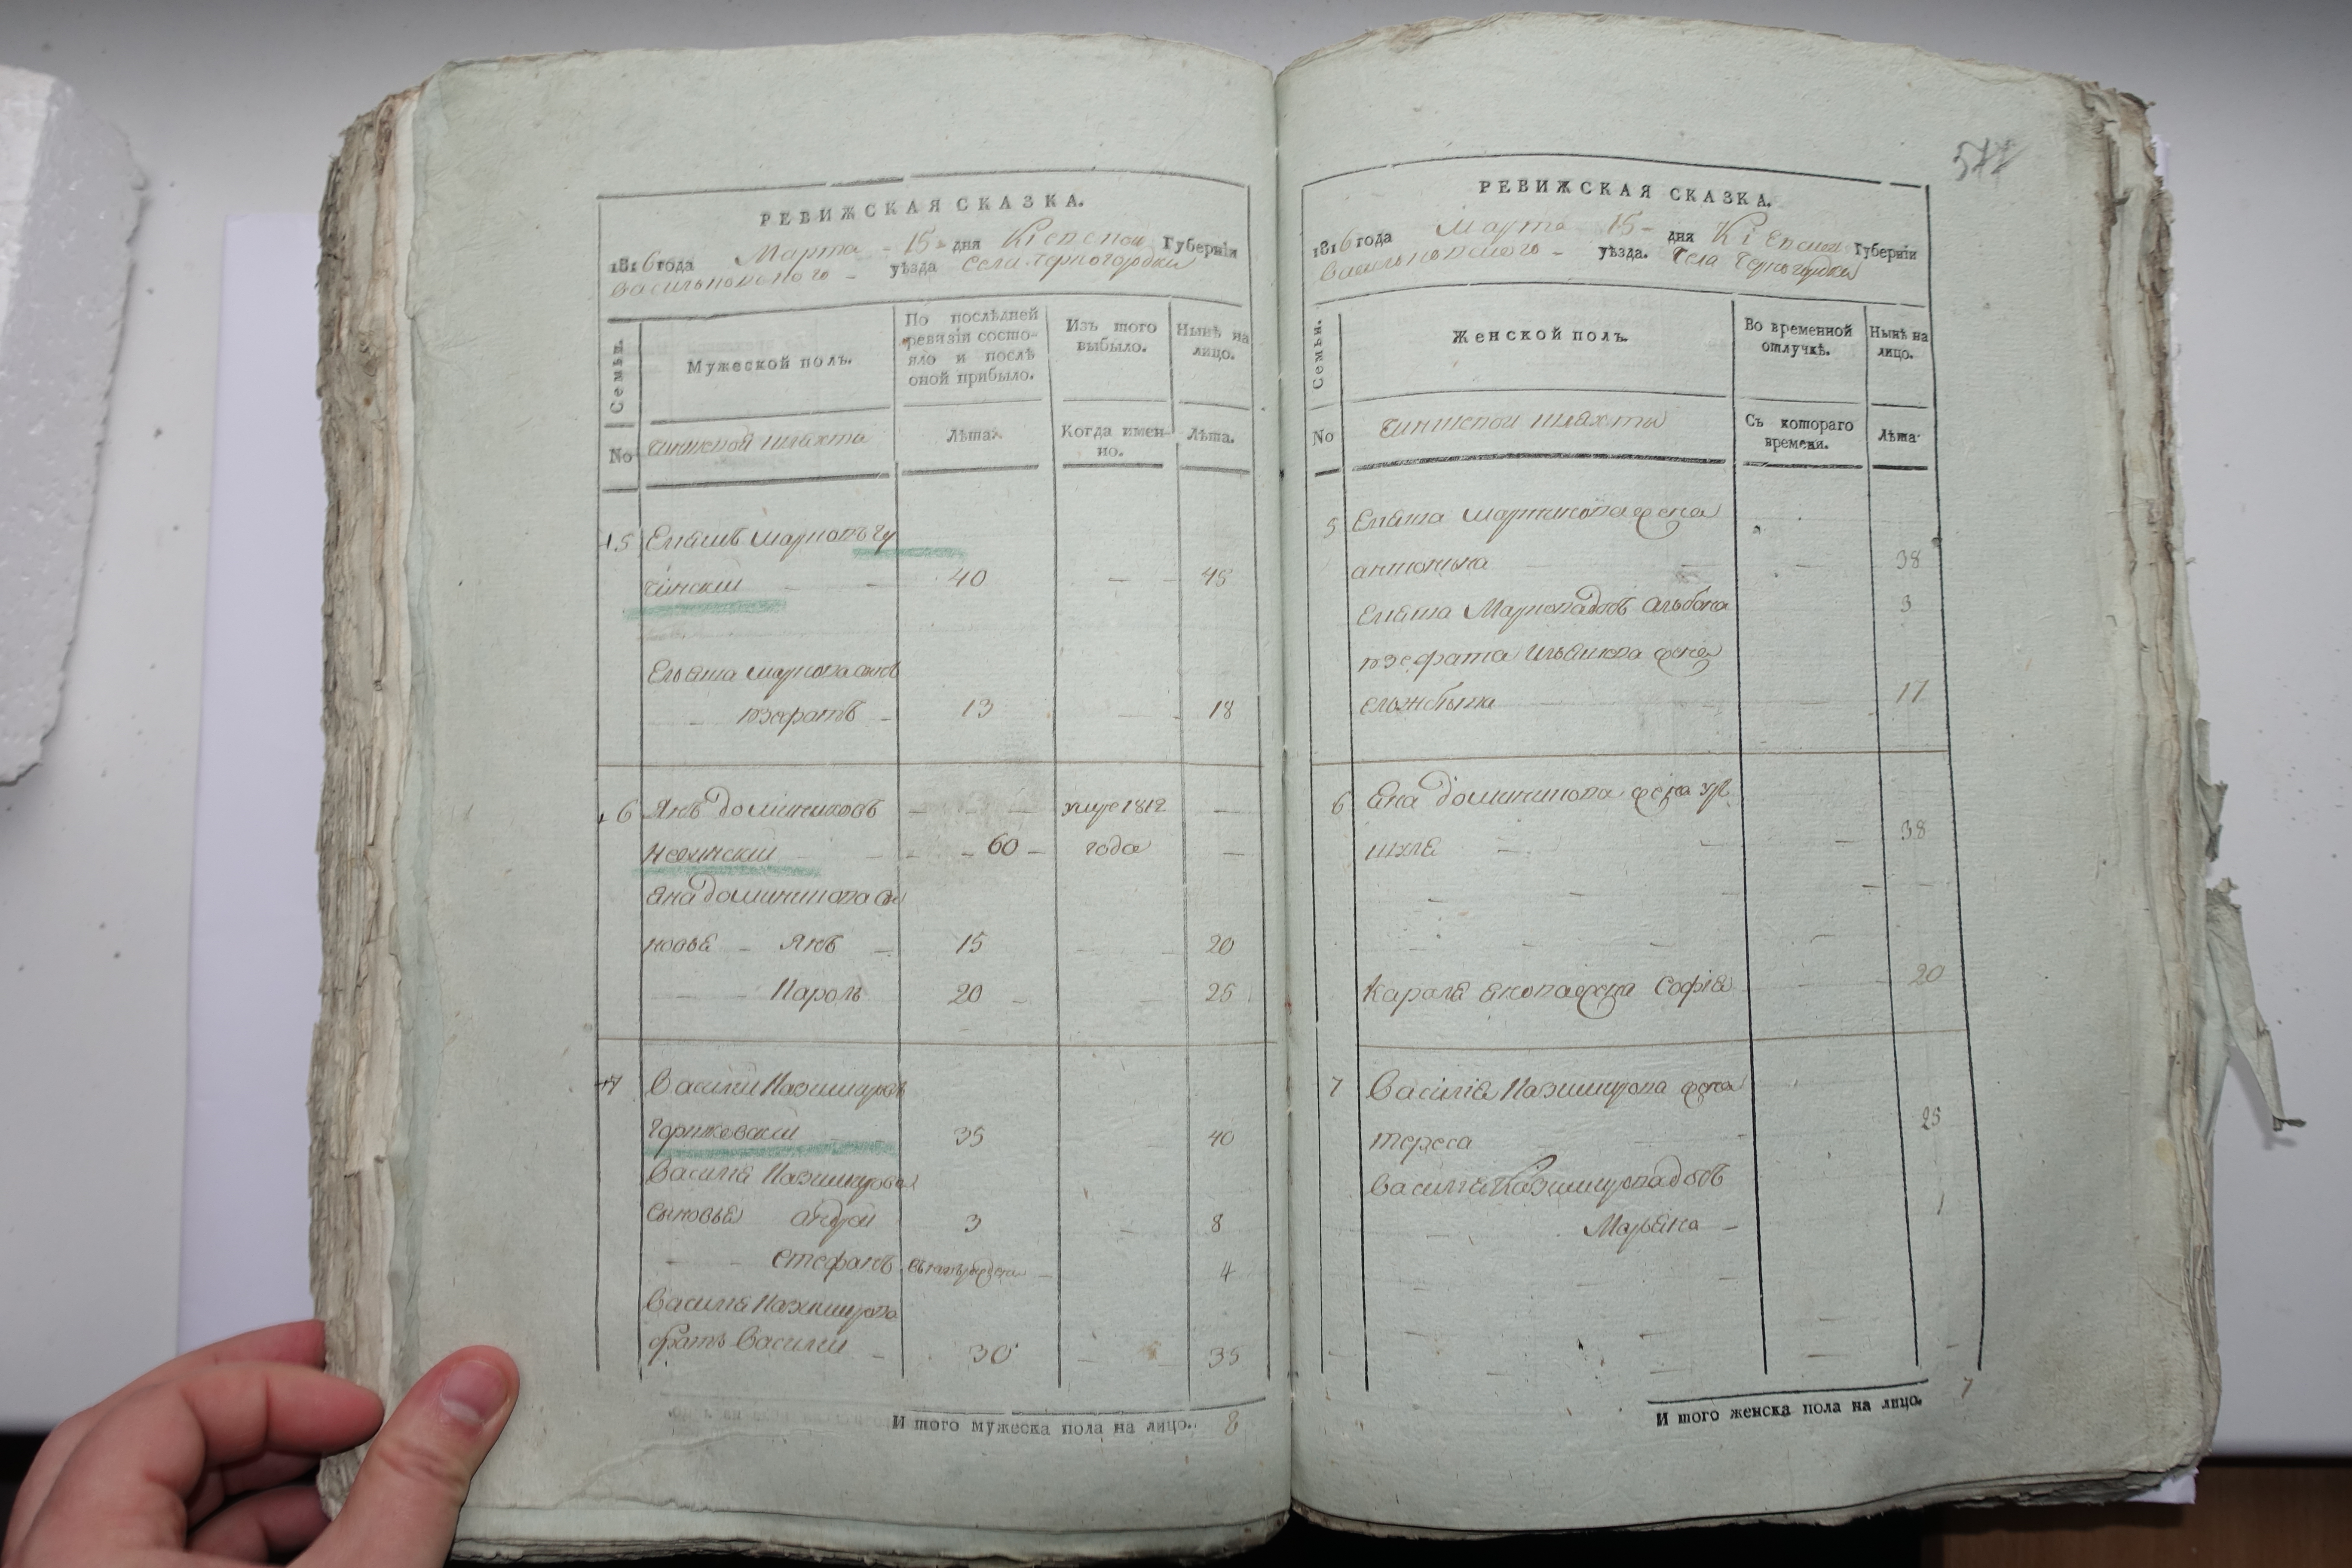 РЕВИЖСКАЯ СКАЗКА.
1816 года Марта 15 дня Кіевской Губерніи
Васильковского уѣзда Села Черногородки
Семьи.
Мужеской полъ.
По послѣдней ревизіи состояло и послѣ оной прибыло.
Изъ того выбыло.
Нынѣ на лицо.
No
чиншевой шляхты
Лѣта.
Когда именно.
Лѣта.
5 Еліяшъ Марковъ Чу
чинскій 40 45
Ельяша Маркова сынъ
Іозефатъ 13 18
6 Янъ Доминиковъ умре 1812
60 года
Яна Доминикова сы
новья Янъ 15 20
Кароль 20 25
7 Василій Казимировъ
Горжковскій 35 40
Василія Казимирова
сыновья Андрей 3 8
Стефанъ 4
Василія Казимирова
братъ Василій 30 35
И того мужеска пола на лицо. 8
577
РЕВИЖСКАЯ СКАЗКА.
1816 года Марта 15 дня Кіевской Губерніи
Васильковского уѣзда. Села Черногородки
Семьи.
Женской полъ.
Во временной отлучкѣ.
Нынѣ на лицо.
No
чиншевой шляхты
Съ котораго времени.
Лѣта.
5 Еліяша Маркова жена
Антонина 38
Еліяша Маркова дочь Альбина 3
Іозефата Ильяшова жена
Ельжбѣта 17
6 Яна Доминикова жена Ур
шуля 38
Кароля Янова жена Софія 20
7 Василія Казимирова жена
Тереса 25
Василія Казимирова дочь
Марьяна 1
И того женска пола на лицо. 7